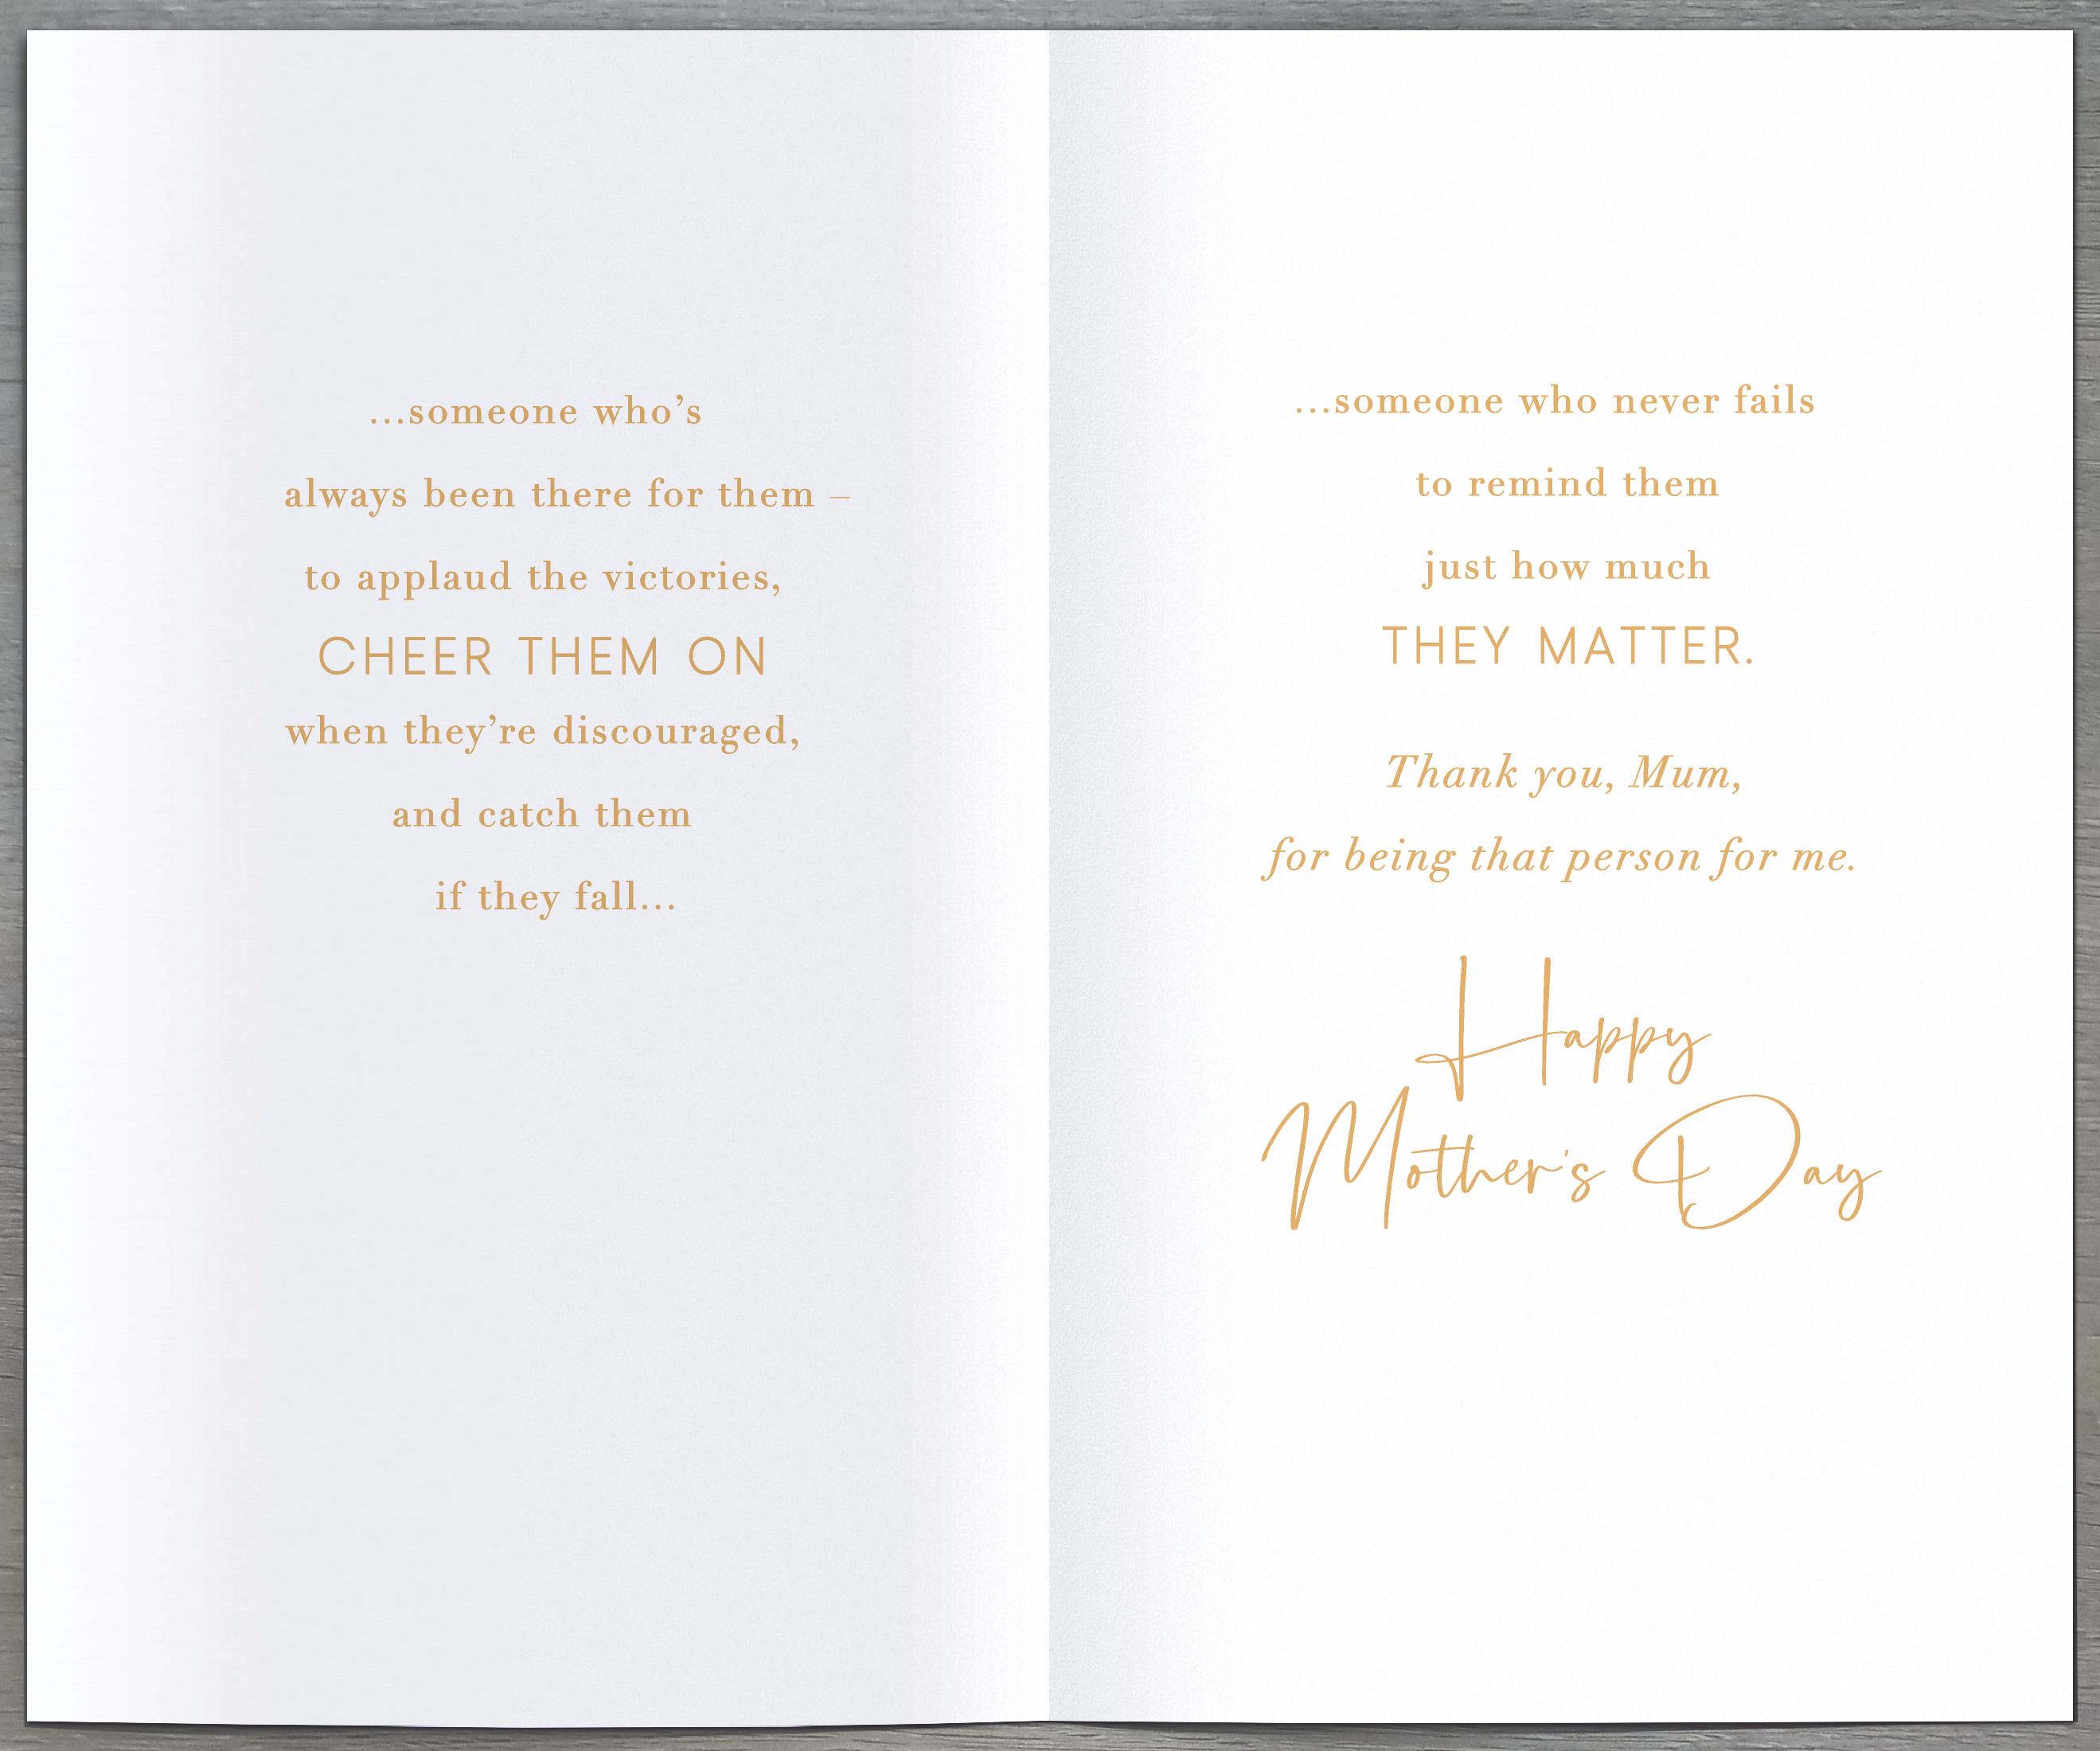 ...someone who's
always been there for them –
to applaud the victories,
CHEER THEM ON
when they're discouraged,
and catch them
if they fall...
...someone who never fails
to remind them
just how much
THEY MATTER.
Thank you, Mum,
for being that person for me.
Happy
Mother's Day